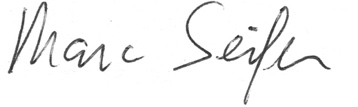 Marc Seifer